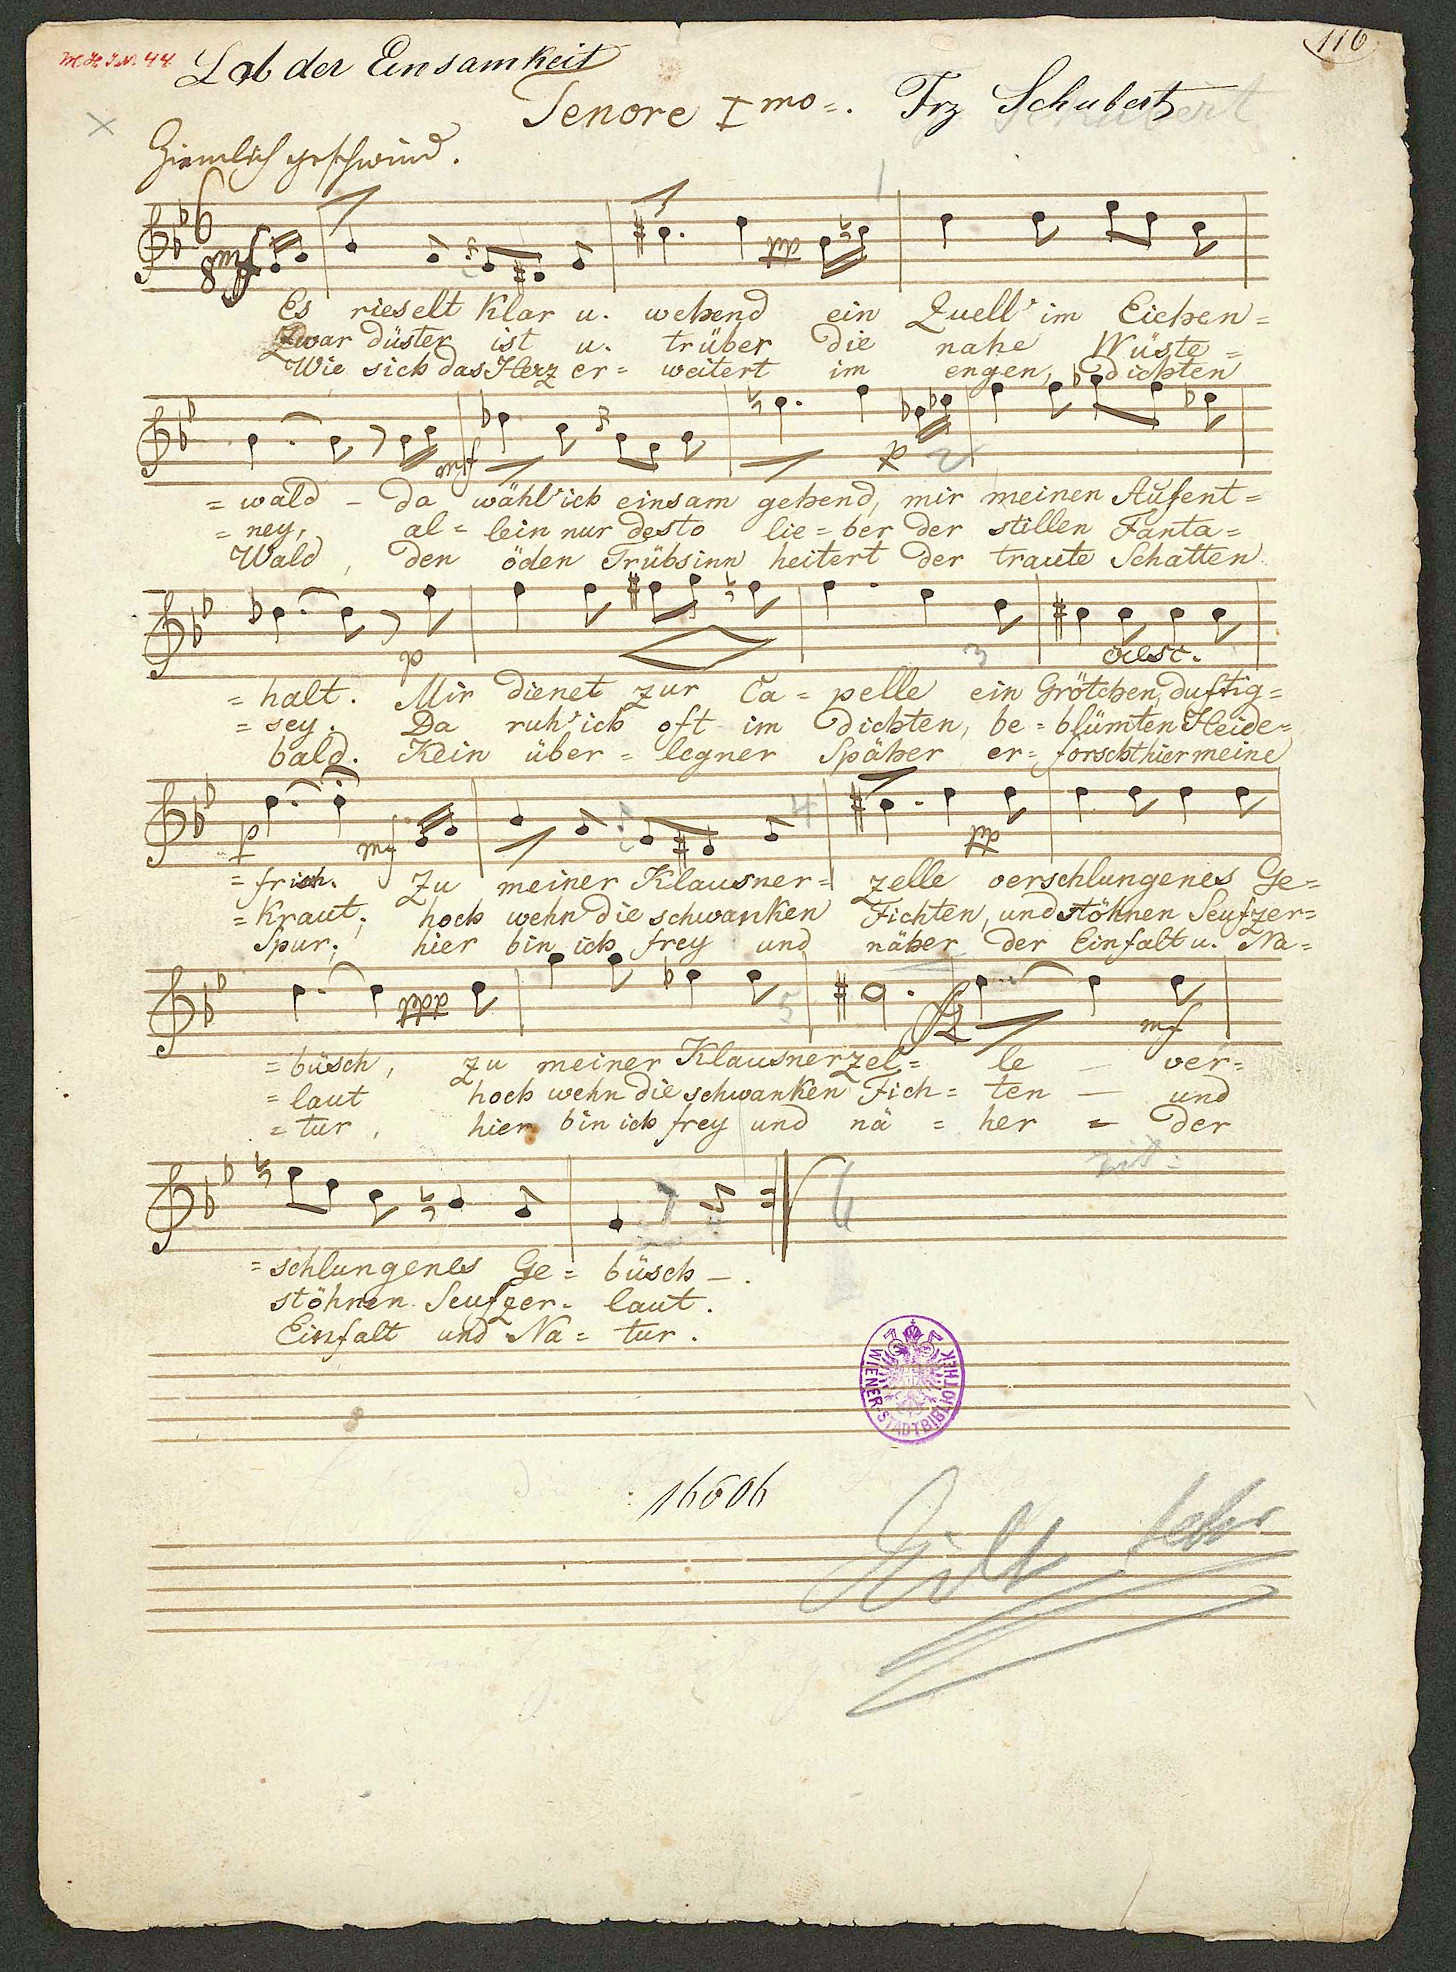 M H I N. 44
116
Lob der Einsamkeit
Tenore Imo.
Frz Schubert
Ziemlich geschwind.
6
8 mf
1
Es rieselt klar u. wehend ein Quell' im Eichen=
Zwar düster ist u. trüber die nahe Wüste=
Wie sich das Herz er= weitert im engen, dichten
mf p 2
= wald – da wähl' ich einsam gehend, mir meinen Aufent=
= ney, al= lein nur desto lie= ber der stillen Fanta=
Wald, den öden Trübsinn heitert der traute Schatten
p 3 cresc.
= halt. Mir dienet zur Ca= pelle ein Grötchen, duftig=
= sey. Da ruh' ich oft im dichten, be= blümten Heide=
bald. Kein über= legner Späher er= forscht hier meine
p mf 4 pp
= frisch. Zu meiner Klausner= zelle verschlungenes Ge=
= kraut; hoch wehn die schwanken Fichten, und stöhnen Seufzer=
Spur; hier bin ich frey und näher der Einfalt u. Na=
5 fz mf
= büsch, zu meiner Klausnerzel= le – ver=
= laut hoch wehn die schwanken Fich= ten – und
= tur, hier bin ich frey und nä= her = der
6
= schlungenes Ge= büsch –.
stöhnen Seufzer= laut.
Einfalt und Na= tur.
WIENER-STADTBIBLIOTHEK
16606